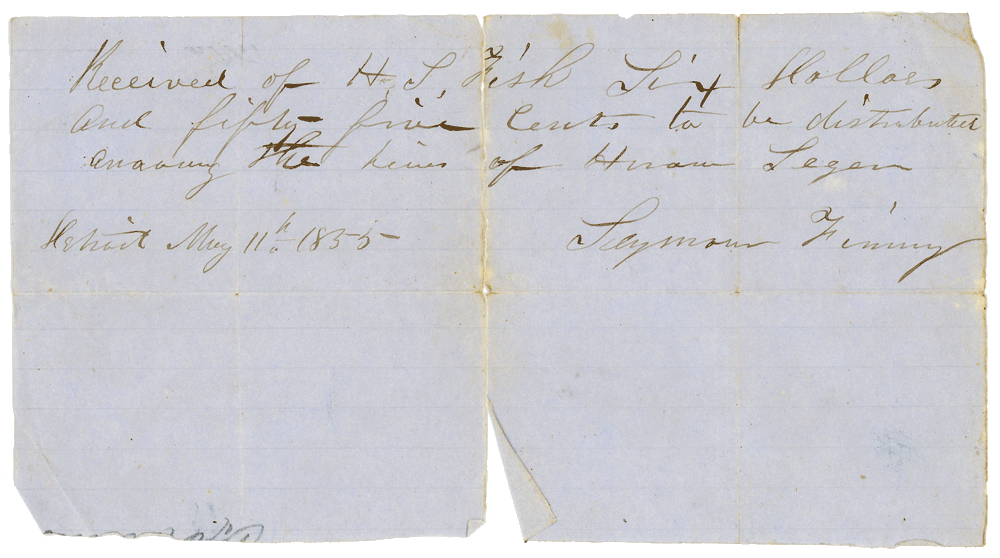 Received of H. S. Fish Six Dollars
and fifty five Cents to be distributed
among the heirs of Hiram
Detroit May 11th 1855
Seymour Finney